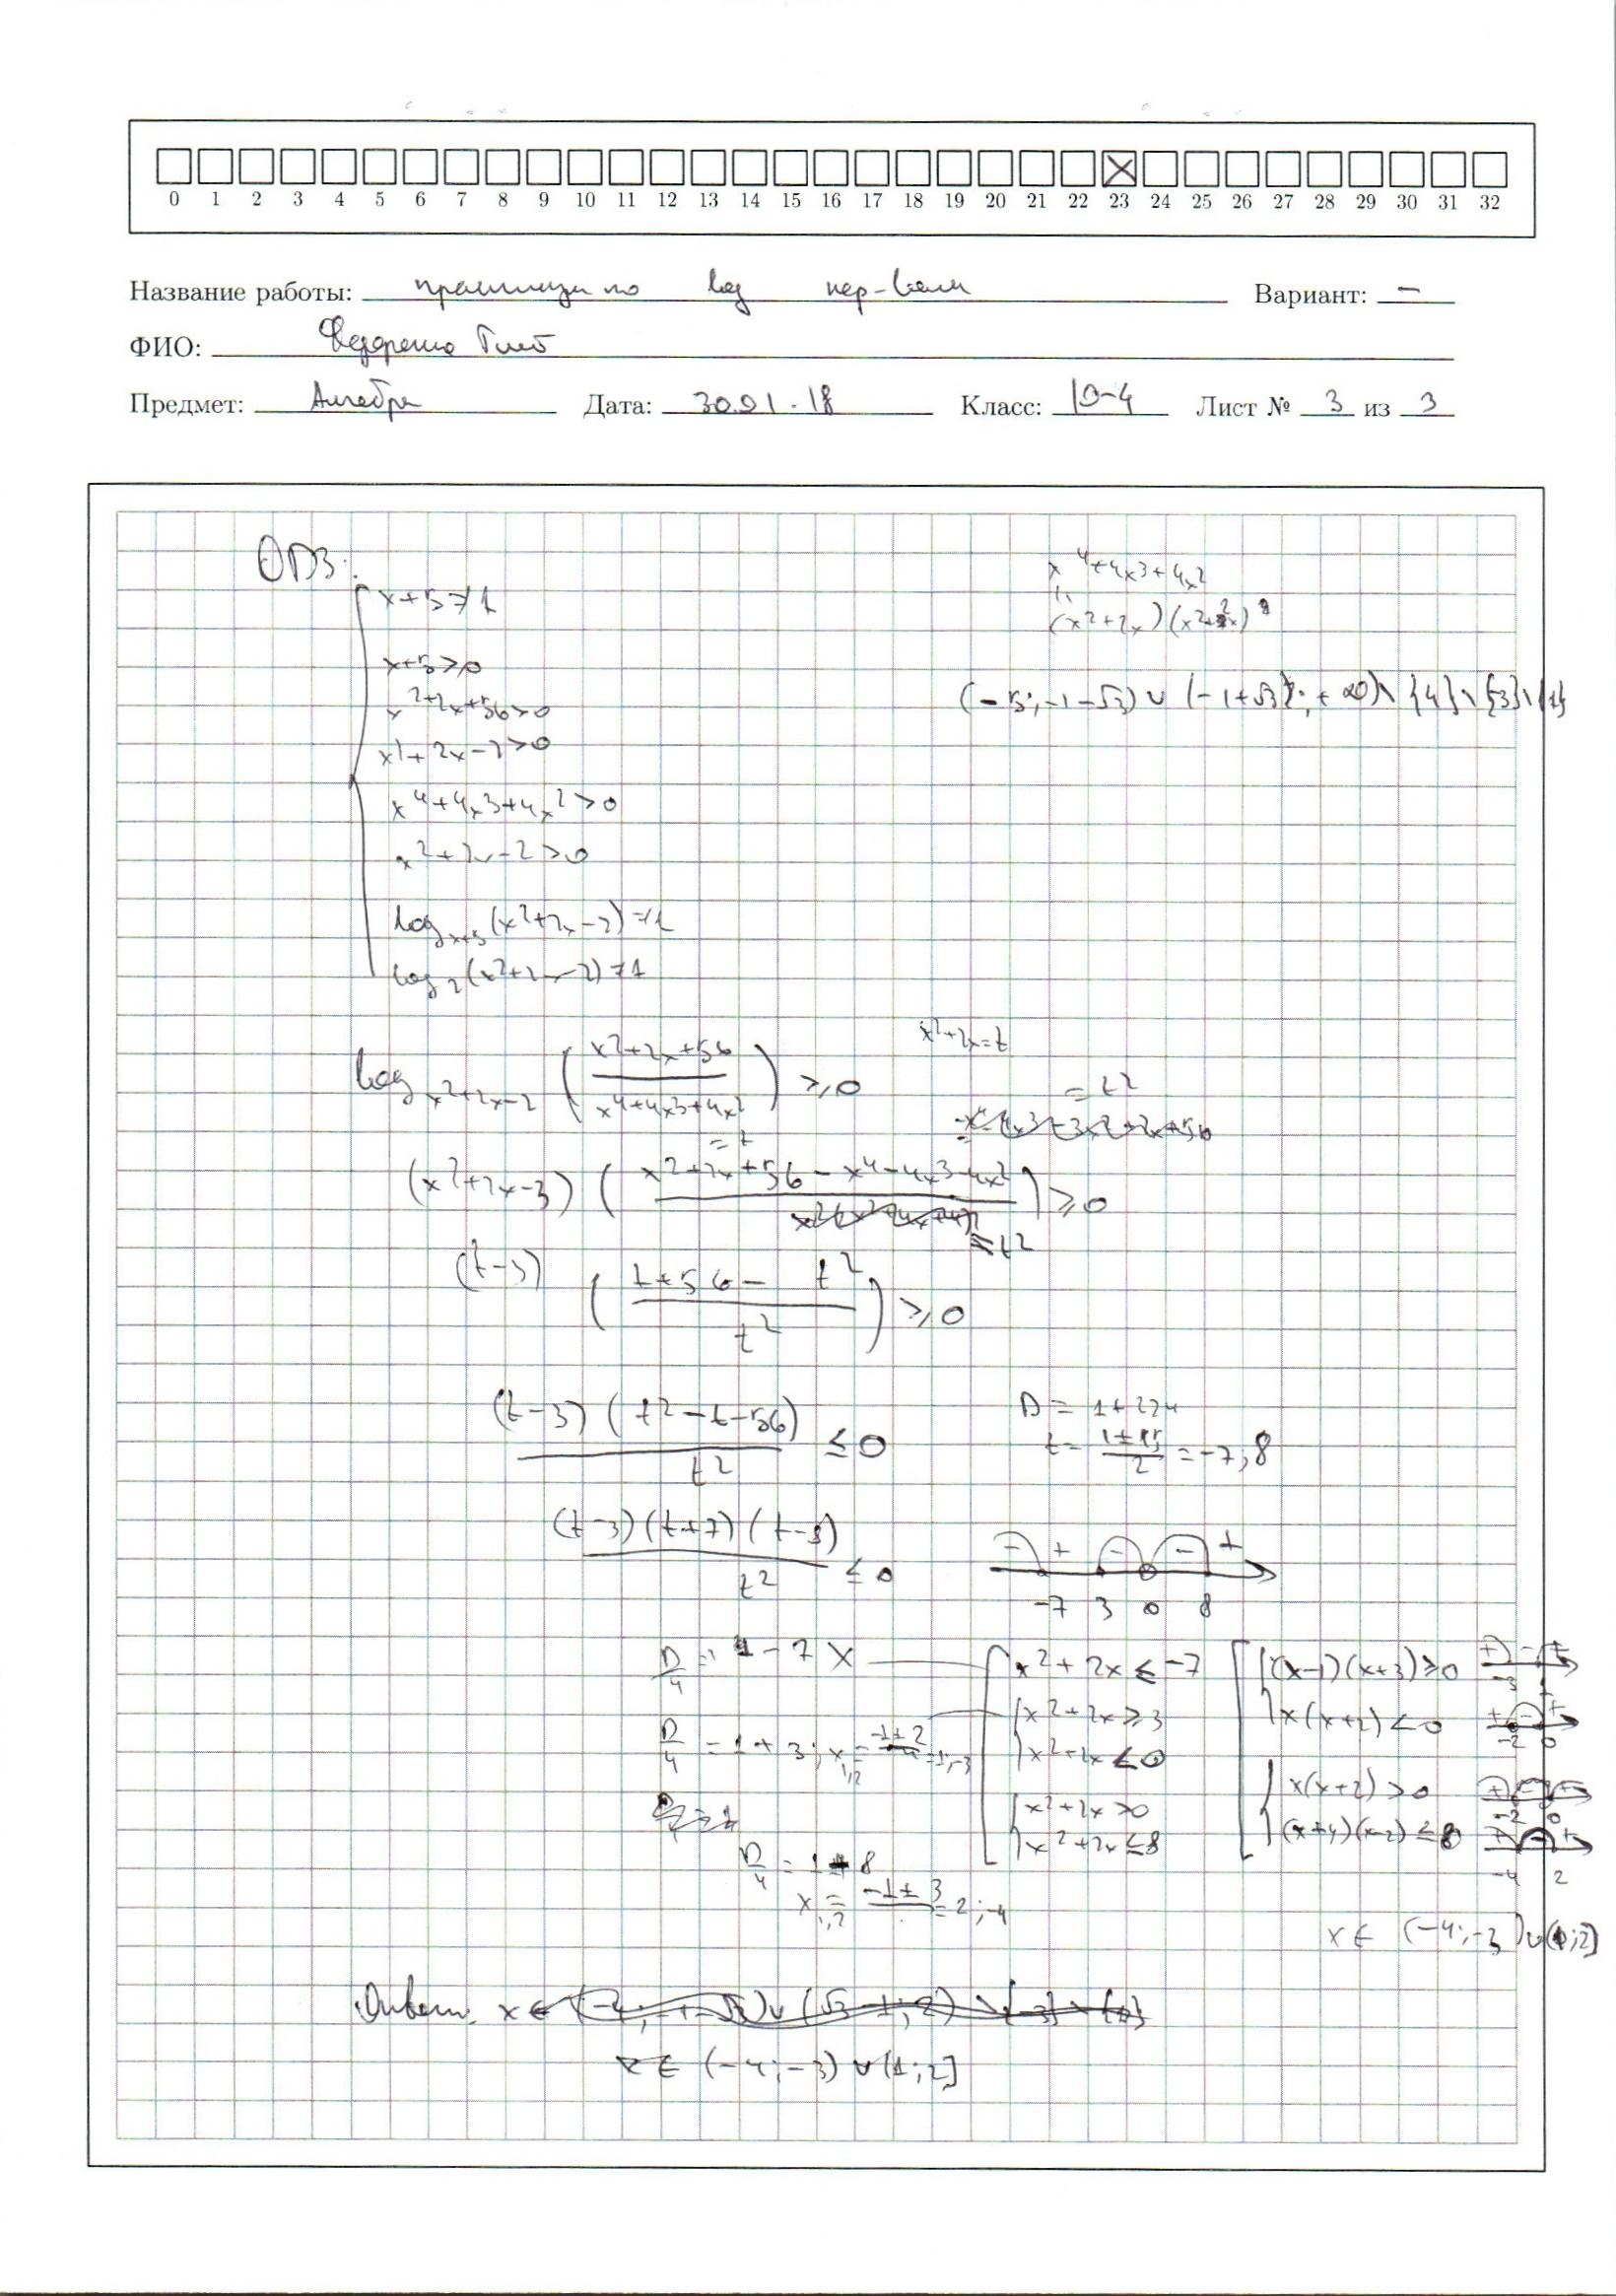 0 1 2 3 4 5 6 7 8 9 10 11 12 13 14 15 16 17 18 19 20 21 22 23 24 25 26 27 28 29 30 31 32
Название работы: по log нер-вам Вариант: –
ФИО: Глеб
Предмет: Алгебра Дата: 30.01.18 Класс: 10-4 Лист № 3 из 3
ОДЗ:
x+5≠1
x+5>0
x²+2x+56>0
x²+2x-2>0
x⁴+4x³+4x²>0
x²+2x-2>0
log_{x+5}(x²+2x-2)≠1
log_2(x²+2x-2)≠1
x⁴+4x³+4x²
(-5;-1-√3)∪(-1+√3;+∞)\{4}\{-3}\{1}
log_{x²+2x-2}((x²+2x+56)/(x⁴+4x³+4x²)) ≥0
x²+2x=t
=t²
(x²+2x-3)((x²+2x+56-x⁴-4x³-4x²)/ ) ≥0
=t²
(t-3)((t+56-t²)/t²) ≥0
(t-3)(t²-t-56)/t² ≤0
D=1+224
t=(1±15)/2=-7,8
(t-3)(t+7)(t-8)/t² ≤0
- + - - +
-7 3 0 8
D/4=1-7 X
x²+2x≤-7
(x-1)(x+3)≥0
-3 1
D/4=1+3; x₁,₂=-1±2=1;-3
x²+2x≥3
x²+2x<0
x(x+2)<0
-2 0
x²+2x>0
x²+2x≤8
x(x+2)>0
-2 0
(x+4)(x-2)≤0
-4 2
D/4=1+8
x₁,₂=-1±3=2;-4
x∈(-4;-3)∪(1;2]
Ответ: x∈
x∈(-4;-3)∪(1;2]